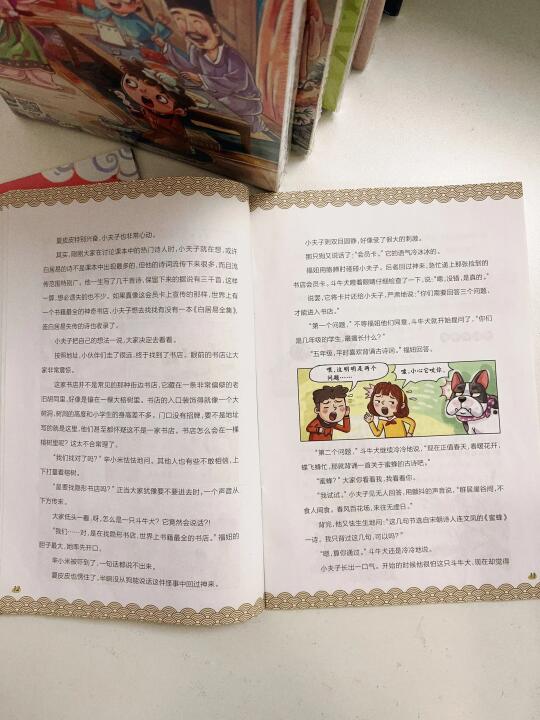 夏皮皮特别兴奋，小夫子也非常心动。
其实，刚刚大家在讨论课本中的热门诗人时，小夫子就在想，或许
白居易的诗不是课本中出现最多的，但他的诗词流传下来很多，而且流
传范围特别广。他一生写了几千首诗，保留下来的据说有三千首，这样
一算，想必遗失的也不少。如果真像这会员卡上宣传的那样，世界上有
一个书籍最全的神奇书店，小夫子想去找找有没有一本《白居易全集》，
签白居易失传的诗也收录了。
小夫子把自己的想法一说，大家决定去看看。
按照地址，小伙伴们走了很远，终于找到了书店。眼前的书店让大
家非常震惊。
这家书店并不是常见的那种街边书店，它藏在一条非常偏僻的老
旧胡同里，好像是镶在一棵大榕树里。书店的入口装饰得就像一个大
树洞，树洞的高度和小学生的身高差不多。门口没有招牌，要不是地址
写的就是这里，他们甚至都怀疑这不是一家书店。书店怎么会在一棵
榕树里呢？这太不合常理了。
“我们找对了吗？”辛小米怯怯地问。其他人也有些不敢相信，上
下打量着榕树。
“是要找隐形书店吗？”正当大家犹豫要不要进去时，一个声音从
下方传来。
大家低头一看，呀，怎么是一只斗牛犬？它竟然会说话？！
“我们……对，是在找隐形书店，世界上书籍最全的书店。”福妞的
胆子最大，她率先开口。
辛小米被吓到了，一句话都说不出来。
夏皮皮也愣住了，半晌没从狗能说话这件怪事中回过神来。
小夫子则双目圆睁，好像受了很大的刺激。
那只狗又说话了：“会员卡。”它的语气冷冰冰的。
福妞用胳膊肘碰碰小夫子。后者回过神来，急忙递上那张捡到的
书店会员卡。斗牛犬瞪着眼睛仔细检查了一下，说：“嗯，没错，是真的。”
说罢，它将卡片还给小夫子，严肃地说：“你们需要回答三个问题，
才能进入书店。”
“第一个问题，”不等福妞他们同意，斗牛犬就开始提问了，“你们
是几年级的学生，最擅长什么？”
“五年级，平时喜欢背诵古诗词。”福妞回答。
喂，这明明是两个
问题……
嘘，小心它咬你。
“第二个问题，”斗牛犬继续冷冷地说，“现在正值春天，春暖花开，
蝶飞蜂忙，那就背诵一首关于蜜蜂的古诗吧。”
“蜜蜂？”大家你看看我，我看看你。
“我试试。”小夫子见无人回答，用颤抖的声音说，“群居崖谷间，不
食人间食。春风百花场，来往无虚日。”
背完，他又怯生生地问：“这几句节选自宋朝诗人连文凤的《蜜蜂》
一诗，我只背过这几句，可以吗？”
“嗯，算你通过。”斗牛犬还是冷冷地说。
小夫子长出一口气。开始的时候他很怕这只斗牛犬，现在却觉得